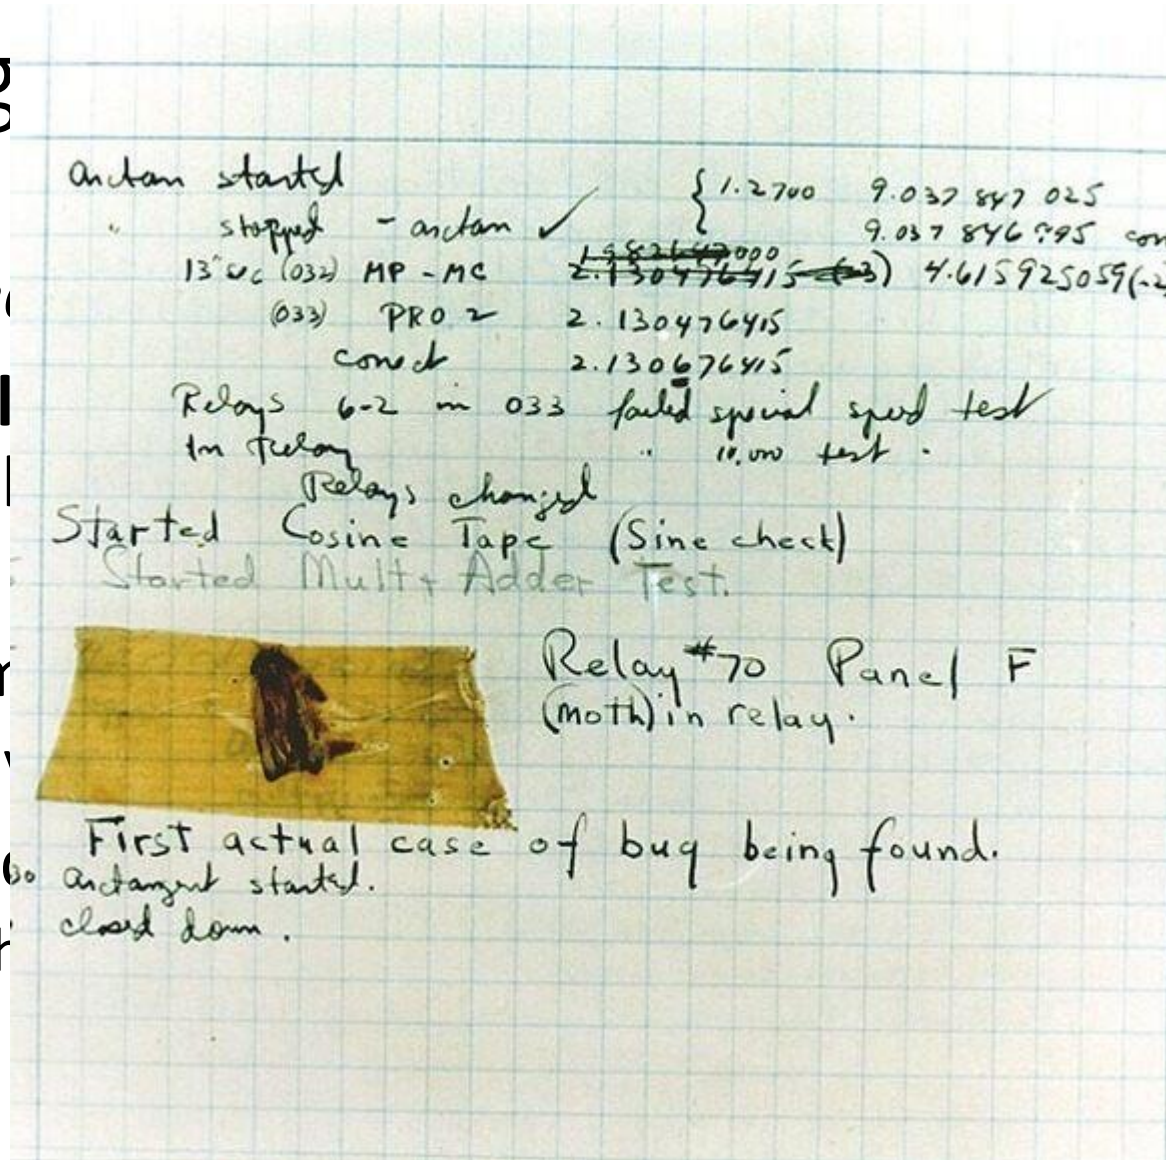 arctan started { 1.2700 9.037 847 025
" stopped - arctan ✓ 9.037 846 995
13" (032) MP - MC 000
2.130476415 (-3) 4.615925059(-2
(033) PRO 2 2.130476415
correct 2.130676415
Relays 6-2 in 033 failed special speed test
In Relay " 10,000 test .
Relays changed
Started Cosine Tape (Sine check)
Started Mult + Adder Test.
Relay #70 Panel F
(moth) in relay.
First actual case of bug being found.
arctangent started.
closed down .